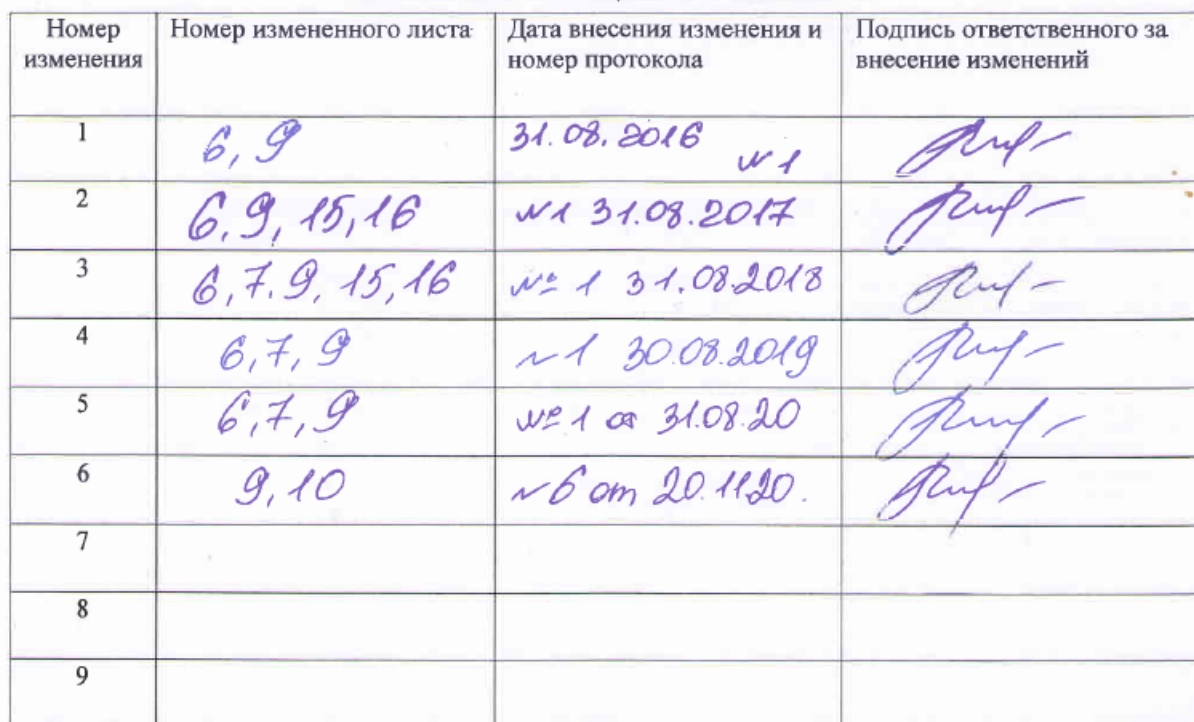 Номер изменения Номер измененного листа Дата внесения изменения и номер протокола Подпись ответственного за внесение изменений
1 6, 9 31.08.2016 №1
2 6, 9, 15, 16 №1 31.08.2017
3 6, 7. 9, 15, 16 № 1 31.08.2018
4 6, 7, 9 №1 30.08.2019
5 6, 7, 9 № 1 от 31.08.20
6 9, 10 №6 от 20.11.20.
7
8
9